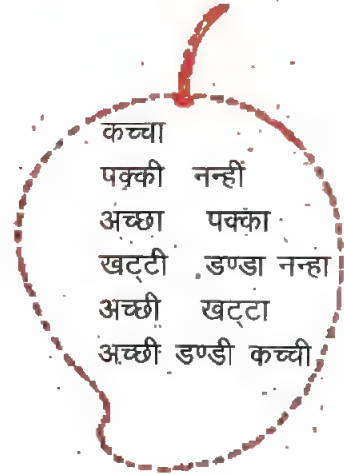 कच्चा
पक्की नन्हीं
अच्छा पक्का
खट्टी डण्डा नन्हा
अच्छी खट्टा
अच्छी डण्डी कच्ची